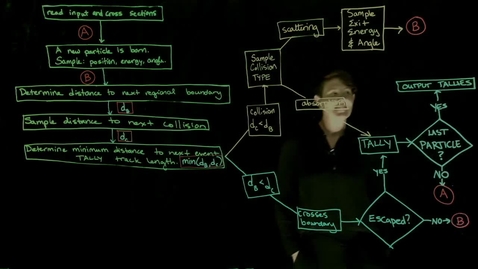 read input and cross sections
A
A new particle is born.
Sample: position, energy, angle.
B
Determine distance to next regional boundary
d_B
Sample distance to next collision
d_c
Determine minimum distance to next event
TALLY track length. min(d_B, d_c)
Collision
d_c < d_B
Sample
Collision
TYPE
scattering
Sample
Exit
Energy
& Angle
B
absorb
d_B < d_c
Crosses
boundary
Escaped?
NO
B
YES
TALLY
LAST
PARTICLE
?
NO
A
YES
OUTPUT TALLIES